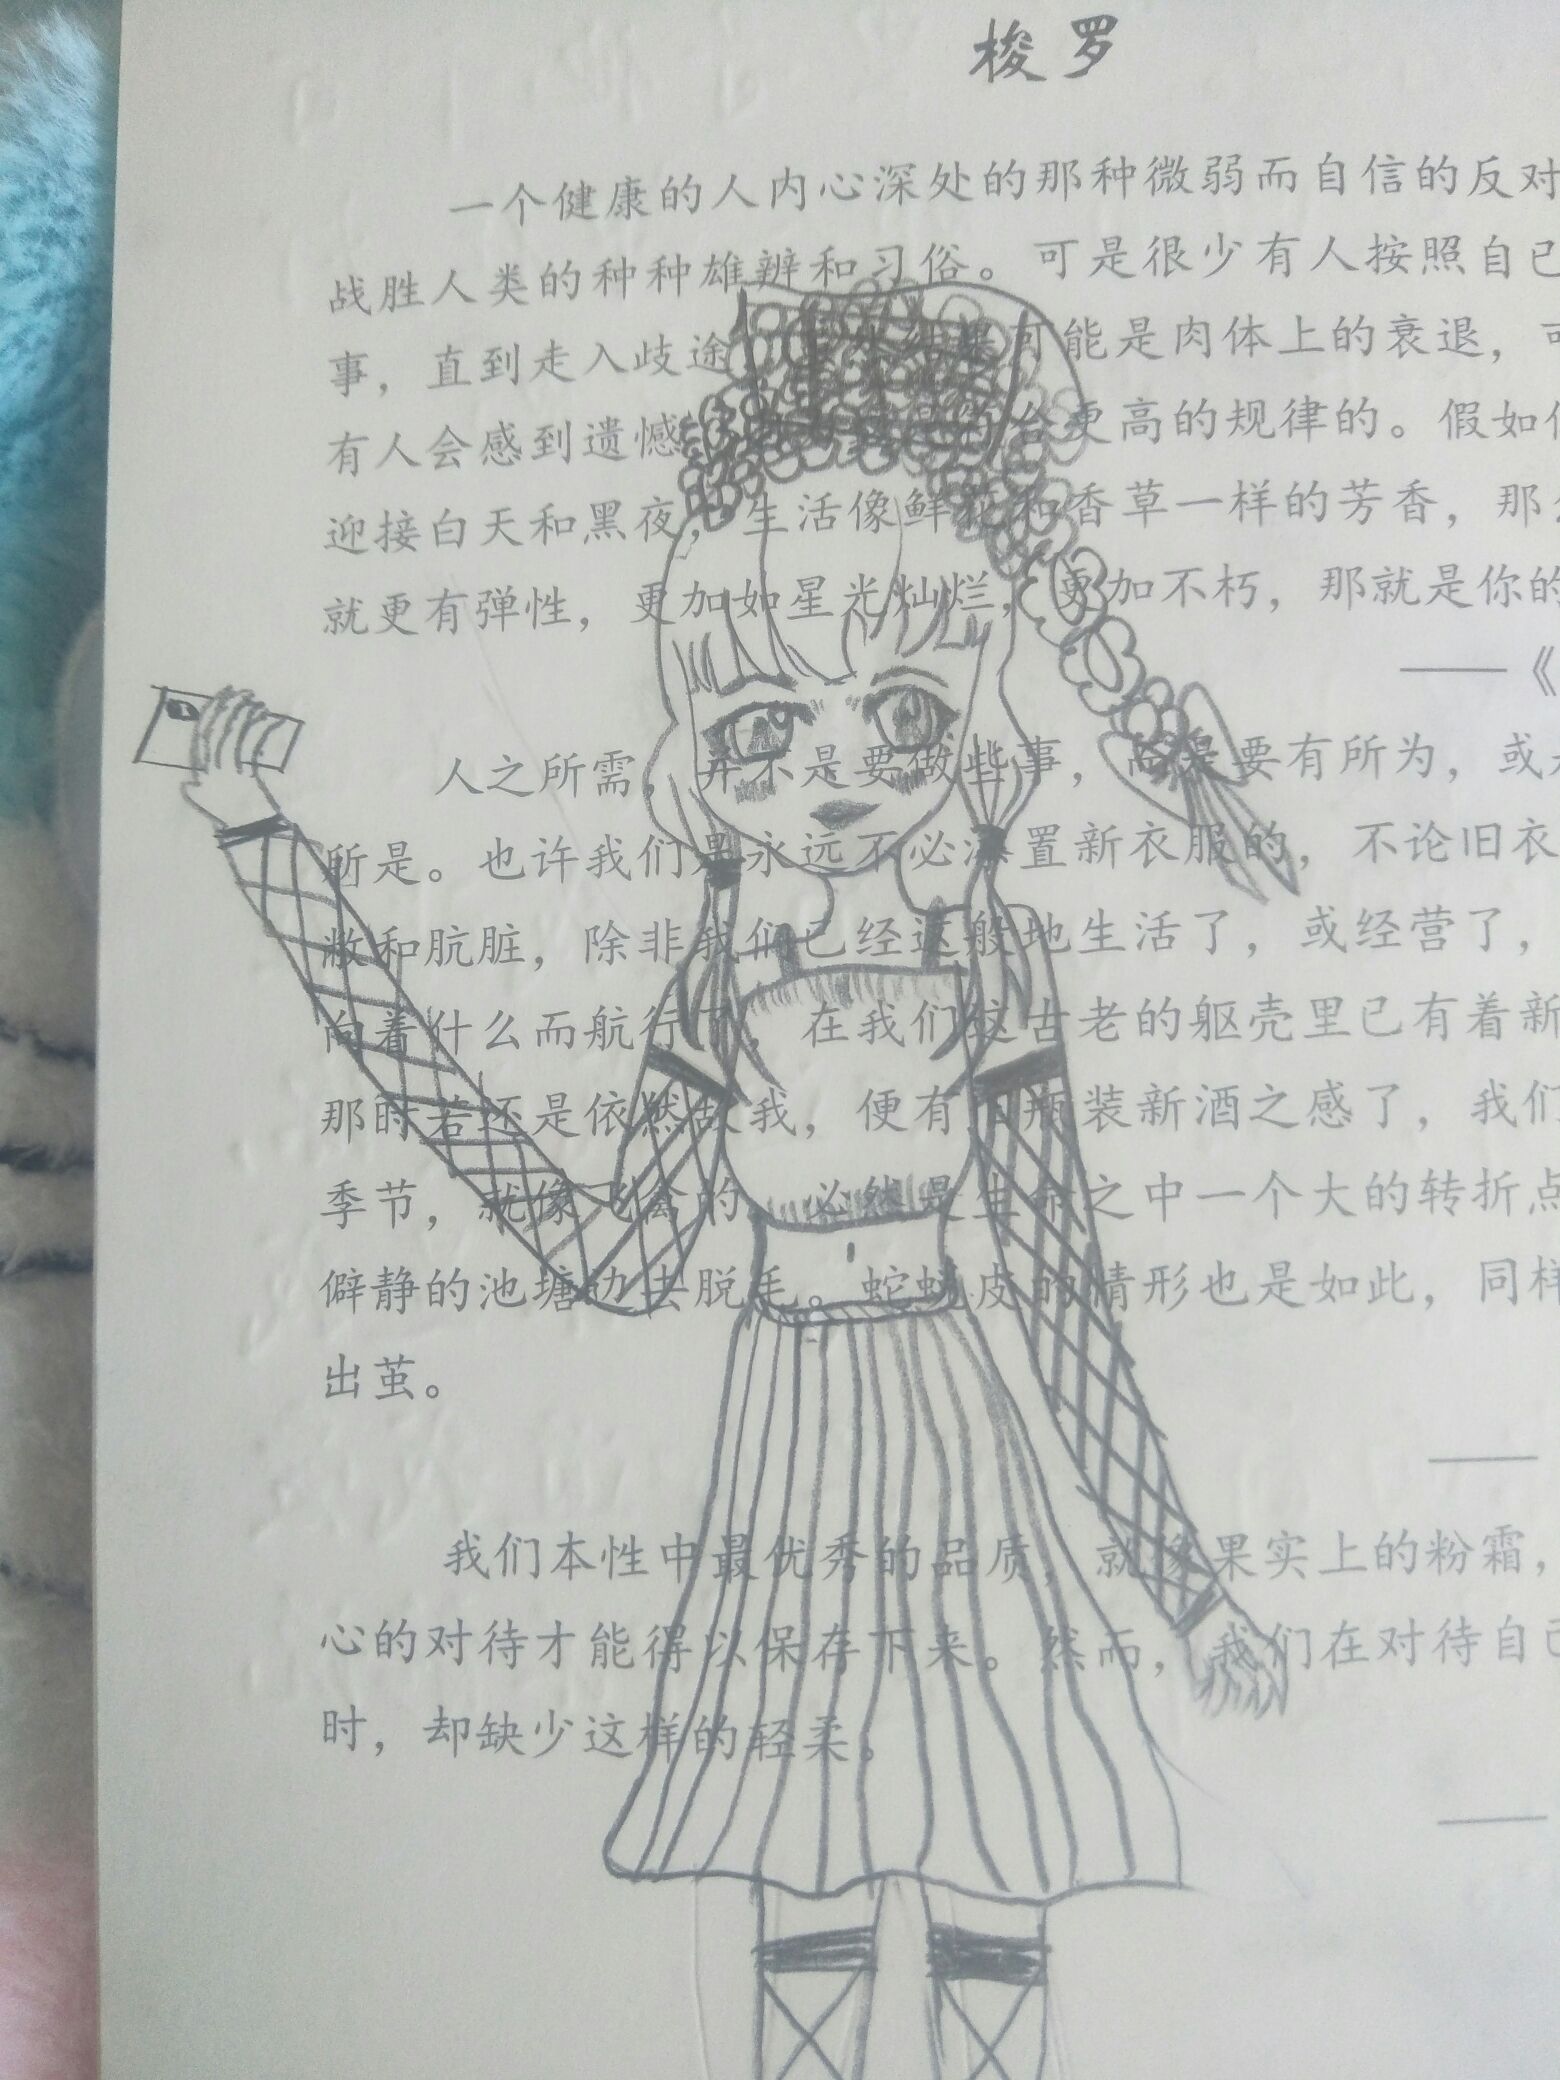 梭罗
一个健康的人内心深处的那种微弱而自信的反对
战胜人类的种种雄辨和习俗。可是很少有人按照自己
事，直到走入歧途 可能是肉体上的衰退，可
有人会感到遗憾 更高的规律的。假如你
迎接白天和黑夜，生活像鲜花和香草一样的芳香，那么
就更有弹性，更加如星光灿烂，更加不朽，那就是你的
——《
人之所需，并不是要做些事，而是要有所为，或是
所是。也许我们是永远不必添置新衣服的，不论旧衣
敝和肮脏，除非我们已经这般地生活了，或经营了，
向着什么而航行了，在我们这古老的躯壳里已有着新
那时若还是依然故我，便有旧瓶装新酒之感了，我们
季节，就像飞禽的，必然是生命之中一个大的转折点
僻静的池塘边去脱毛。蛇蜕皮的情形也是如此，同样
出茧。
——
我们本性中最优秀的品质，就像果实上的粉霜，
心的对待才能得以保存下来。然而，我们在对待自己
时，却缺少这样的轻柔。
——